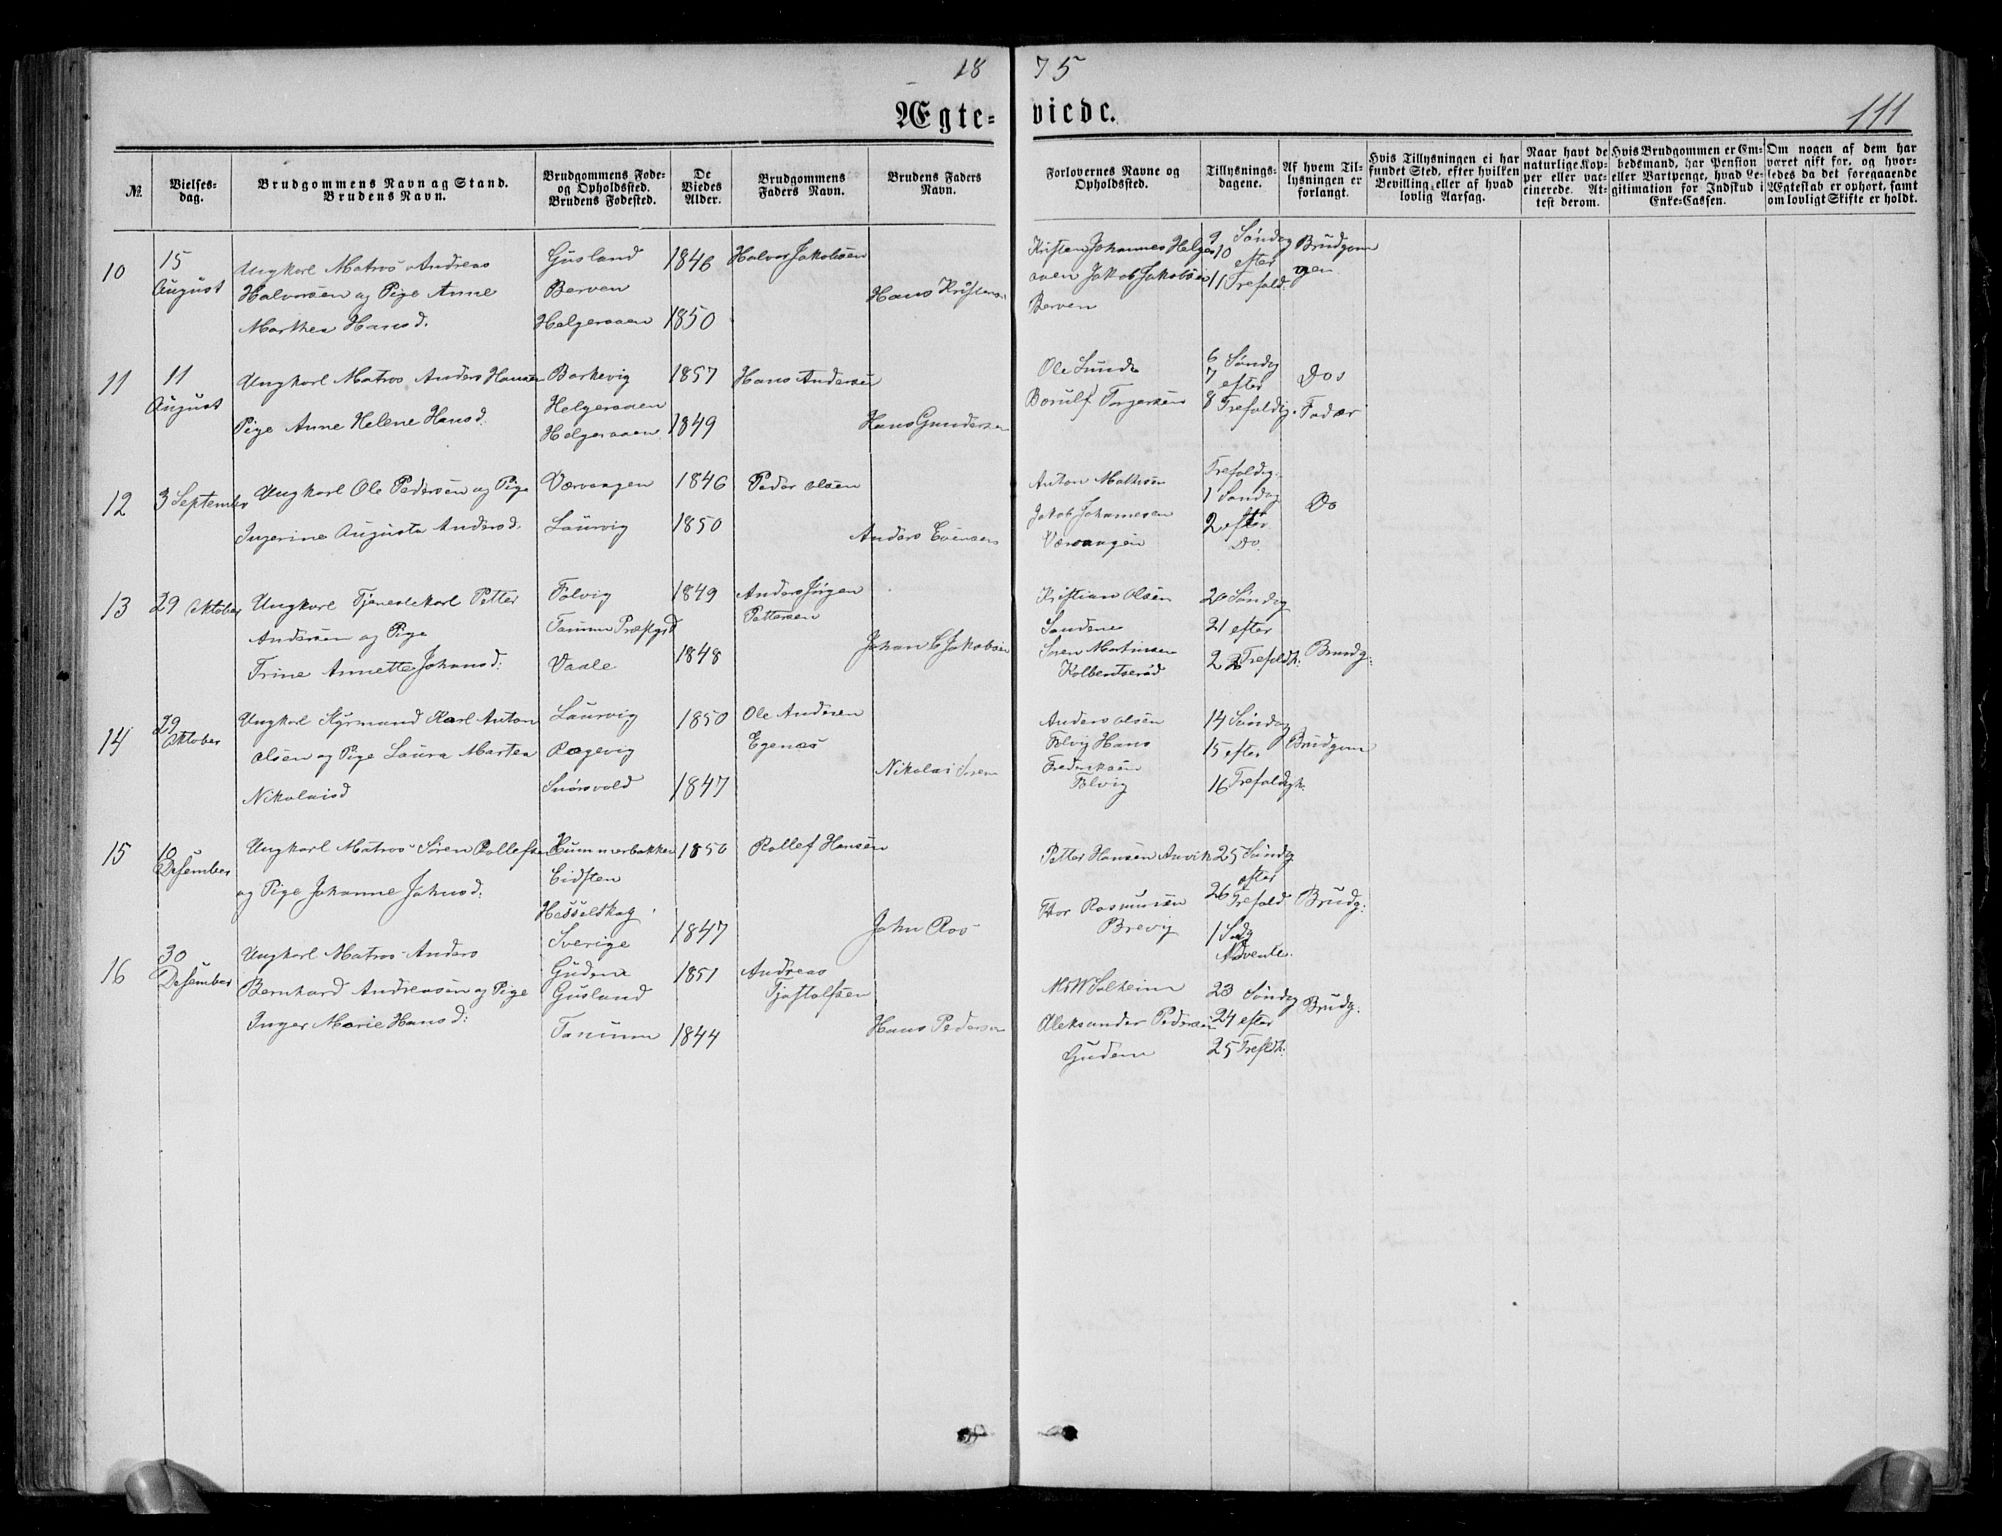 18 75
Ægte= viede.
111
№
Vielses-
dag.
Brudgommens Navn ag Stand.
Brudens Navn.
Brudgommens Føde-
og Opholdssted.
Brudens Fødested.
De
Viedes
Alder.
Brudgommens
Faders Navn.
Brudens Faders
Navn.
Forlovernes Navne og
Opholdssted.
Tillysnings-
dagene.
Af hvem Til-
lysningen er
forlangt.
Hvis Tillysningen ei har
fundet Sted, efter hvilken
Bevilling eller af hvad
lovlig Aarsag.
Naar havt de
naturlige Kop-
per eller vac-
cinerede. At-
test derom.
Hvis Brudgommen er Em-
bedsmand, har Pension
eller Vartpenge, hvad Le-
gitimation for Indskud i
Enke-Cassen.
Om nogen af dem har
været gift før, og hvor-
ledes da det foregaaende
Ægteskab er ophørt, samt
om lovligt Skifte er holdt.
10
15
August
Ungkarl Matros Andreas
Halvorsen og Pige Anne
Marthea Hansd.
Gusland
Berven
Helgeraaen
1846
1850
Halvor Jakobsen
Hans Kristens
Kristen Johannes Helge
raaen Jakob Jakobsen
Berven
9 Søndag
10 efter
11 Trefold.
Brudgom
gen
11
11
August
Ungkarl Matros Anders Hansen
Pige Anne Helene Hansd.
Barkevig
Helgeraaen
Helgeraaen
1857
1849
Hans Andersen
Hans Gundersen
Ole Lunde
Borulf Torgersens
6 Søndag
7 efter
8 Trefoldig.
Dos
Fader
12
3 September
Ungkarl Ole Pedersen og Pige
Ingerine Augusta Andersd.
Værvaagen
Laurvig
1846
1850
Peder Olsen
Anders Evensen
Anton Mathisen
Jakob Johannesen
Værvaagen
Trefoldig.
1 Søndag
2 efter
Do.
Do
13
29 Oktober
Ungkarl Tjenestekarl Petter
Andersen og Pige
Trine Annette Johansd:
Folvig
Tanum Præstgrd
Vaale
1849
1848
Anders Jørgen
Pettersen
Johan C Jakobsen
Kristian Olsen
Sandene
Søren Martinsen
Kolbentserød
20 Søndag
21 efter
22 Trefoldh:
Brudg:
14
29
Oktober
Ungkarl Styrmand Karl Anton
Olsen og Pige Laura Martea
Nikolaisd
Laurvig
Rægevig
Snørsvold
1850
1847
Ole Andersen
Egenæs
Nikolai Sven
Anders Olsen
Folvig Hans
Fredriksen
Folvig
14 Søndag
15 efter
16 Trefoldigh:
Brudgom
15
10
Desember
Ungkarl Matros Søren Rollefsen
og Pige Johanne Johnsd:
Hummerbakken
Eidsten
Hesselskog
Sverige
1850
1847
Rollef Hansen
John Roo
Petter Hansen Anvik
Thor Rasmusen
Brevig
25 Søndag
efter
26 Trefold
1 Sndg
Advente.
Brudg:
16
30
Desember
Ungkarl Matros Anders
Bernhard Andreasen og Pige
Inger Marie Hansd:
Gudem
Gusland
Tanum
1851
1844
Andreas
Tjostolfsen
Hans Pedersen
M W Solheim
Aleksander Pedersen
Gudem
23 Søndag
24 efter
25 Trefldh:
Brudg: